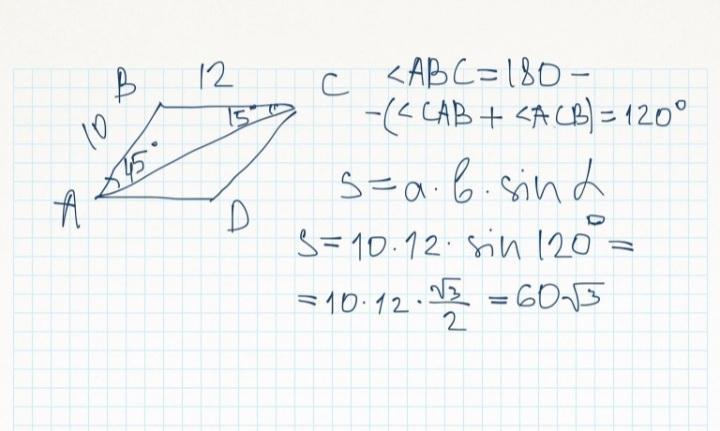 B 12 C
10
15°
45°
A
D
<ABC=180-
-(<CAB+<ACB)=120°
S=a·b·sin α
S=10·12·sin 120°=
=10·12·√3/2=60√3